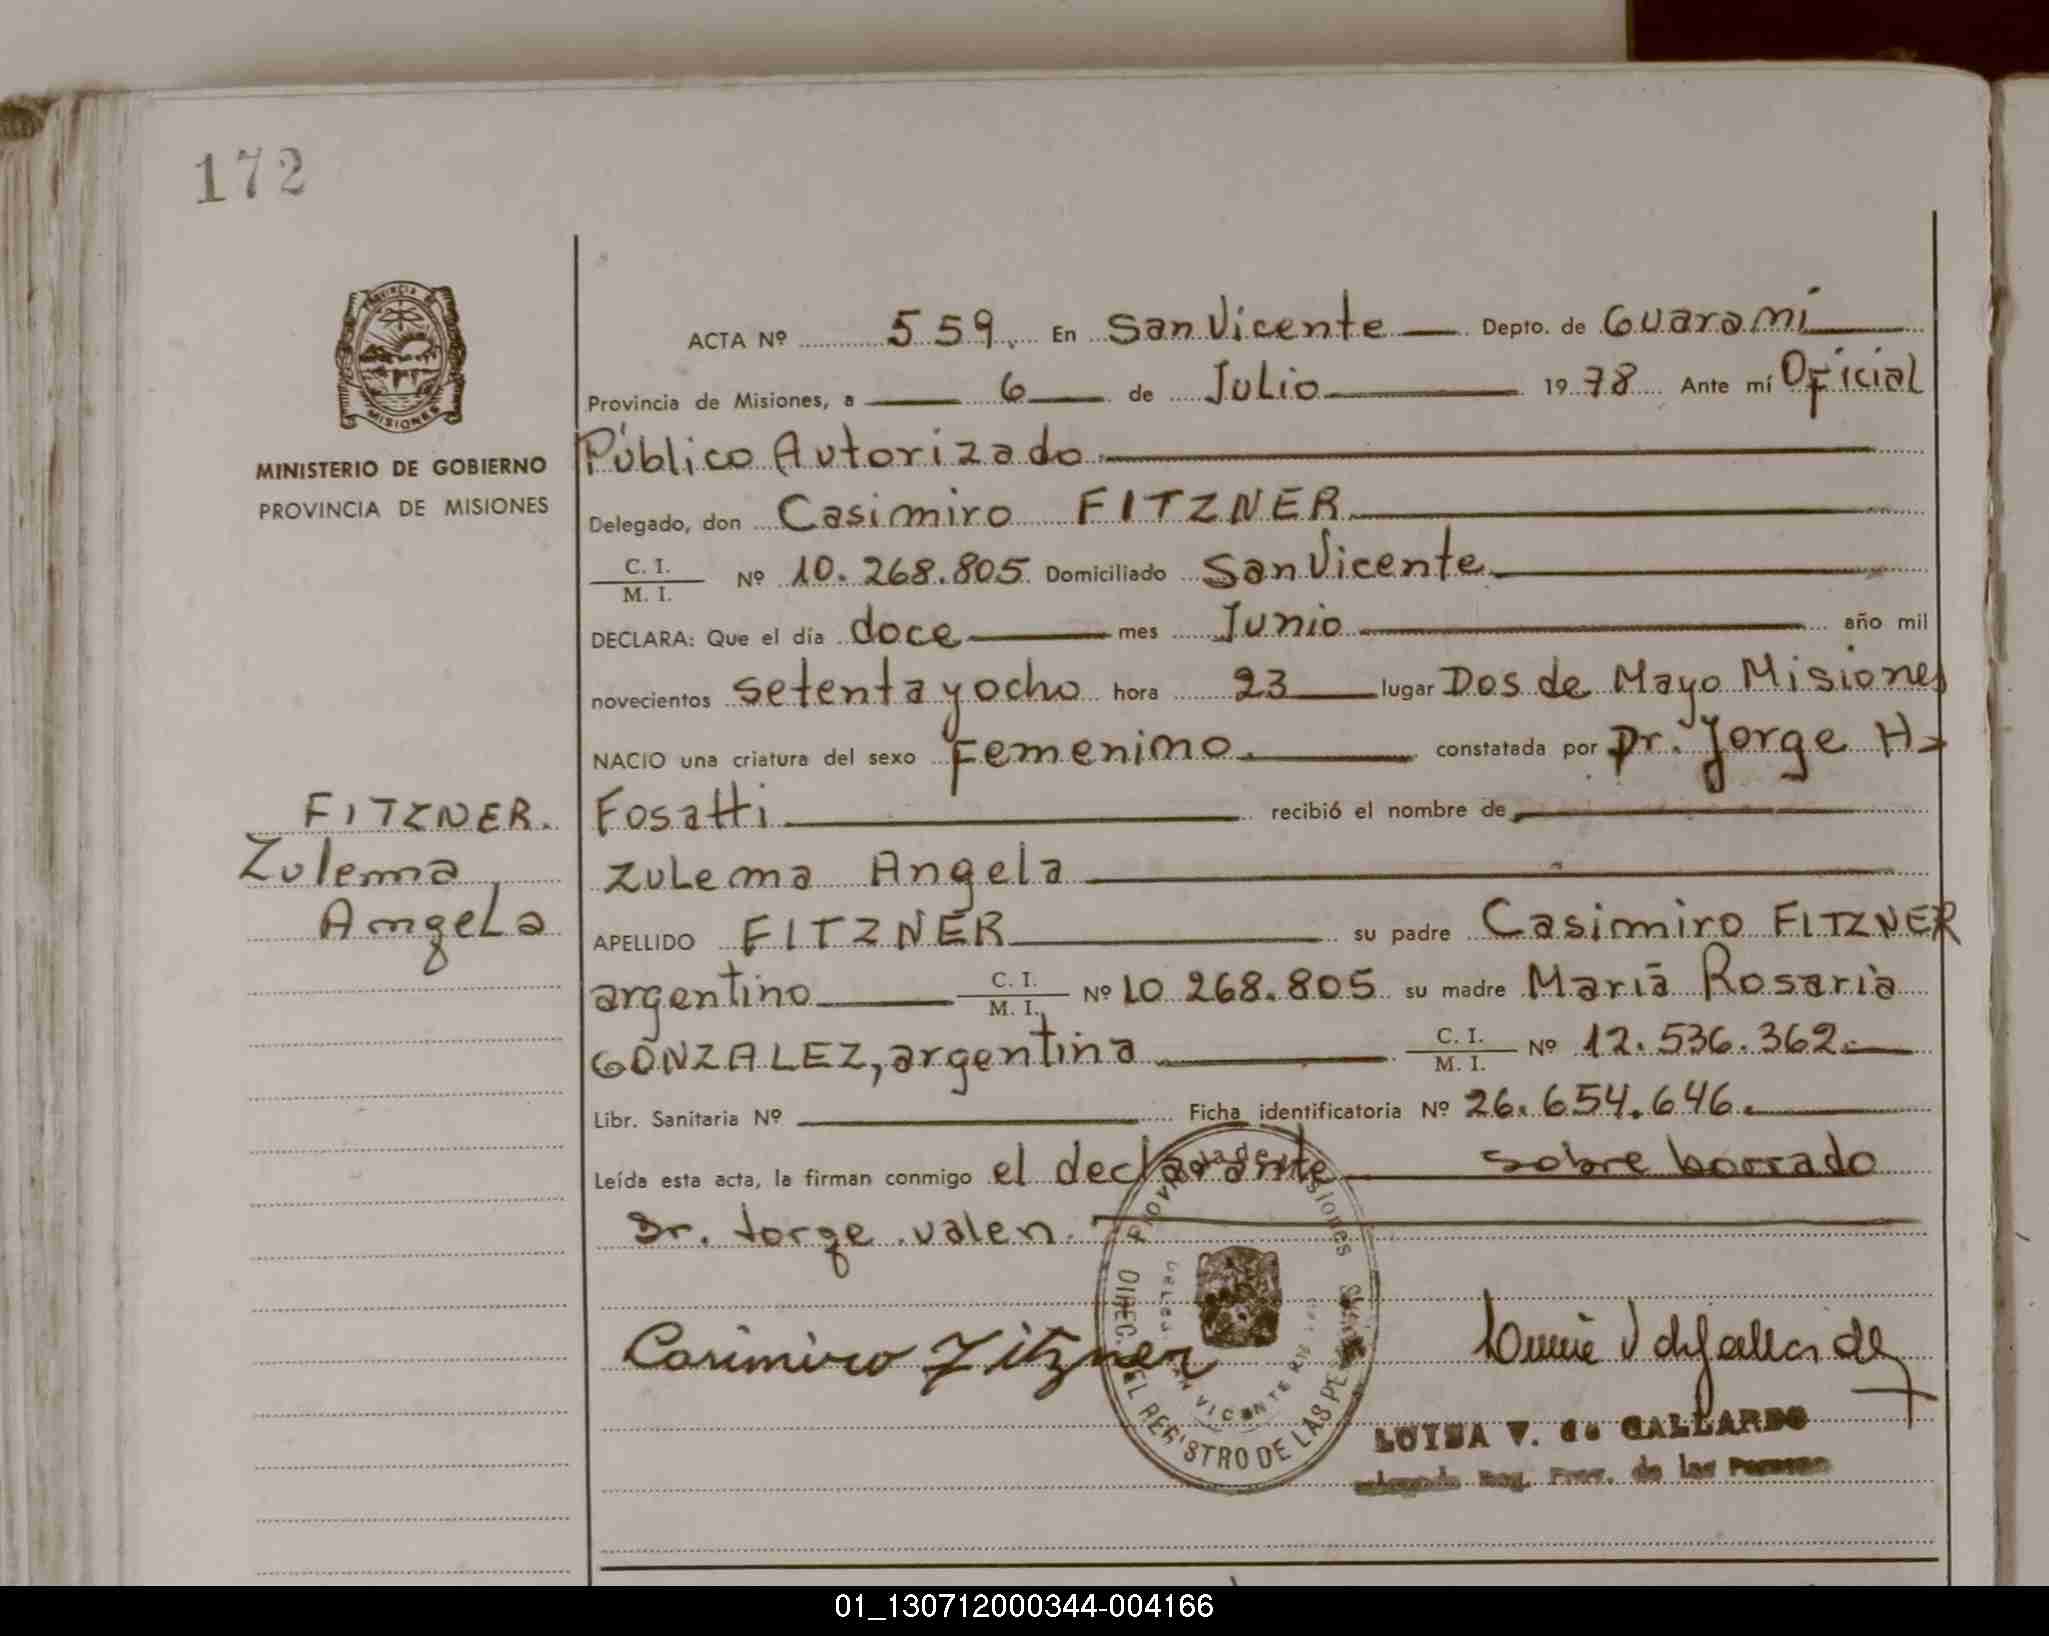 172
PROVINCIA DE
MISIONES
MINISTERIO DE GOBIERNO
PROVINCIA DE MISIONES
FITZNER.
Zulema
Angela
ACTA Nº 559. En San Vicente Depto. de Guaraní
Provincia de Misiones, a 6 de Julio 1978 Ante mí Oficial
Público Autorizado
Delegado, don Casimiro FITZNER
C. I.
M. I. Nº 10.268.805 Domiciliado San Vicente
DECLARA: Que el día doce mes Junio año mil
novecientos setenta y ocho hora 23 lugar Dos de Mayo Misiones
NACIO una criatura del sexo Femenino. constatada por Dr. Jorge H-
Fosatti recibió el nombre de
Zulema Angela
APELLIDO FITZNER su padre Casimiro FITZNER
argentino C. I.
M. I. Nº 10 268.805 su madre María Rosaria
GONZALEZ, argentina C. I.
M. I. Nº 12.536.362.
Libr. Sanitaria Nº Ficha identificatoria Nº 26.654.646.
Leída esta acta, la firman conmigo el declarante sobre borrado
Dr. Jorge valen.
Provincia de Misiones
DIREC. DEL REGISTRO DE LAS PERSONAS
SAN VICENTE
Casimiro Fitzner
LUISA V. de GALLARDO
Reg. Prov. de las Personas
01_130712000344-004166